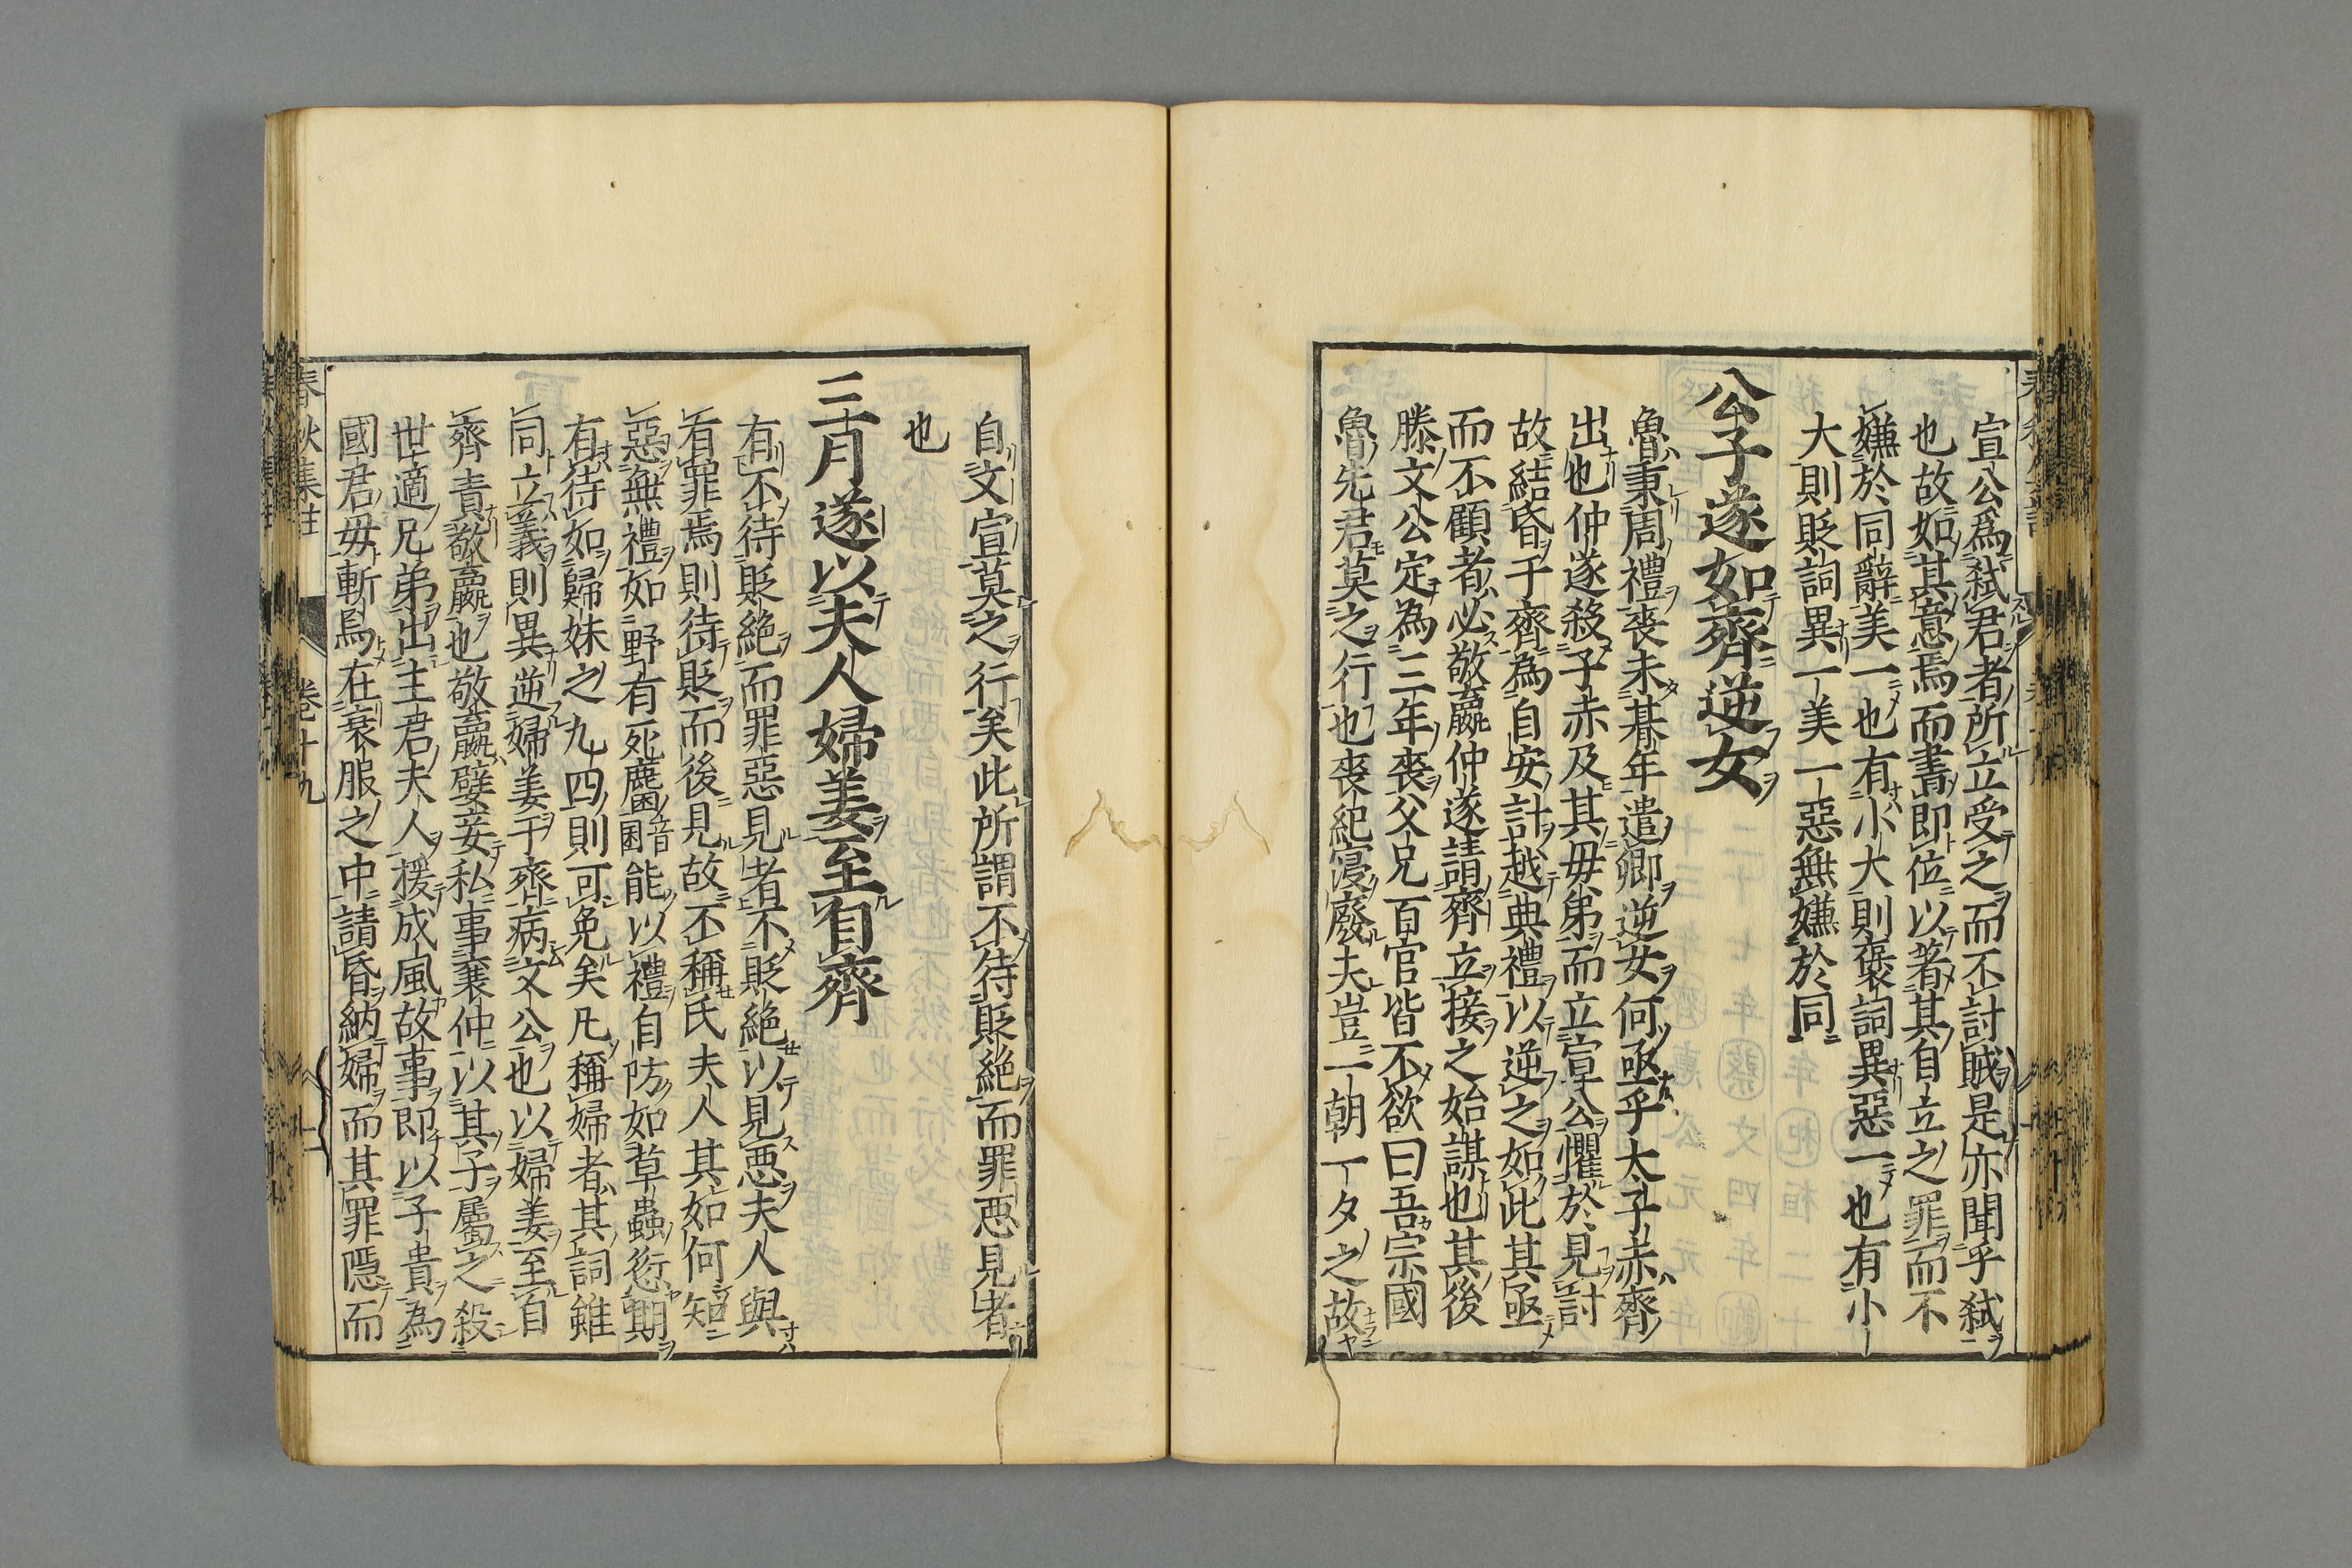 宣公爲弑君者所立受之而不討賊是亦聞乎弑
也故如其意焉而書即位以著其自立之罪而不
嫌於同辭美一也有小大則褒詞異惡一也有小
大則貶詞異一美一惡無嫌於同
公子遂如齊逆女
魯秉周禮喪未朞年遣卿逆女何亟乎太子赤齊
出也仲遂殺子赤及其毋弟而立宣公懼於見討
故結昏于齊為自安計越典禮以逆之如此其亟
而不顧者必敬嬴仲遂請齊立接之始謀也其後
滕文公定為三年喪父兄百官皆不欲曰吾宗國
魯先君莫之行也喪紀寖廢夫豈一朝一夕之故
自文宣莫之行矣此所謂不待貶絶而罪惡見者
也
三月遂以夫人婦姜至自齊
有不待貶絶而罪惡見者不貶絶以見惡夫人與
有罪焉則待貶而後見故不稱氏夫人其如何知
惡無禮如野有死麕能以禮自防如草蟲愆期
有待如歸妹之九四則可免矣凡稱婦者其詞雖
同立義則異逆婦姜于齊病文公也以婦姜至自
齊責敬嬴也敬嬴嬖妾私事襄仲以其子屬之殺
世適兄弟出主君夫人援成風故事即以子貴為
國君毋斬焉在衰服之中請昏納婦而其罪隱而
春秋集註
卷十九